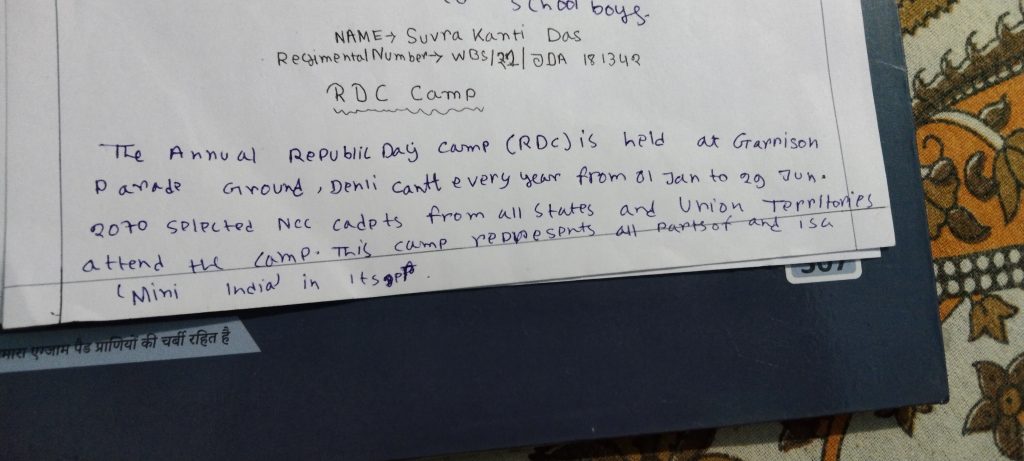 school boys.
NAME→ Suvra Kanti Das
Regimental Number→ WBS/22/JDA 181342
RDC Camp
The Annual Republic Day camp (RDC) is held at Garrison
Parade Ground, Delhi cantt every year from 01 Jan to 29 Jun.
2070 selected Ncc cadets from all States and Union Territories
attend the camp. This camp represents all parts of and is a
(Mini India' in itself.
एग्जाम पैड प्राणियों की चर्बी रहित है